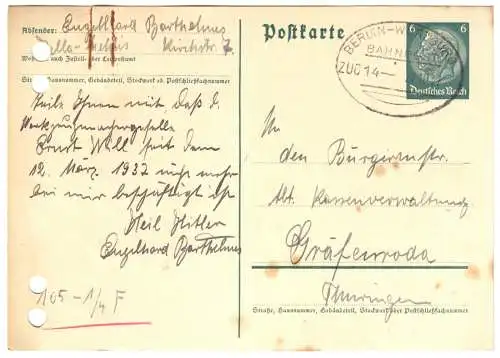 Absender: Engelhard Barthelmes
Zella-Mehlis Kirchstr. 7
Wohnort, auch Zustell- oder Leitpostamt
Straße, Hausnummer, Gebäudeteil, Stockwerk od. Postschließfachnummer
Teile Ihnen mit daß d.
Werkzeugmachergeselle
Ernst Will seit dem
12. März. 1937 nicht mehr
bei mir beschäftigt ist
Heil Hitler
Engelhard Barthelmes
105 - 1/4 F
Postkarte
BERLIN-W
BAHN
ZUG 14
6 6
Deutsches Reich
An
den Bürgermstr.
Abt. Kassenverwaltung
Gräfenroda
Thüringen
Straße, Hausnummer, Gebäudeteil, Stockwerk oder Postschließfachnummer